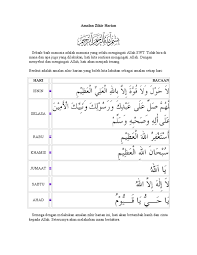 Amalan Zikir Harian
بِسْمِ اللهِ الرَّحْمٰنِ الرَّحِيْمِ
Sebaik-baik manusia adalah manusia yang selalu mengingati Allah SWT. Tidak kira di
mana dan apa juga yang dilakukan, hati kita sentiasa mengingati Allah. Dengan
menyebut dan mengingati Allah, hati akan menjadi tenang.
Berikut adalah amalan zikir harian yang boleh kita lakukan sebagai amalan setiap hari:
HARI BACAAN
ISNIN لَا حَوْلَ وَلَا قُوَّةَ إِلَّا بِاللهِ الْعَلِيِّ الْعَظِيْمِ
SELASA اَللّٰهُمَّ صَلِّ عَلَى مُحَمَّدٍ عَبْدِكَ وَرَسُوْلِكَ وَنَبِيِّكَ الْأُمِّيِّ
وَعَلَى آلِهِ وَصَحْبِهِ وَسَلَّمَ
RABU أَسْتَغْفِرُ اللهَ الْعَظِيْمَ
KHAMIS سُبْحَانَ اللهِ الْعَظِيْمِ
JUMAAT يَا اَللهُ
SABTU لَا إِلٰهَ إِلَّا اللهُ
AHAD يَا حَيُّ يَا قَيُّوْمُ
Semoga dengan melakukan amalan zikir harian ini, hati akan bertambah kasih dan cinta
kepada Allah. Seterusnya akan melakukan amal berkekalan.